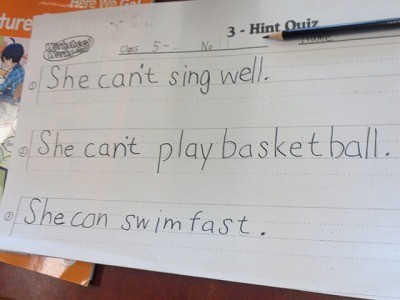 Here We Go!
3 - Hint Quiz
Class 5 - No Name
① She can't sing well.
② She can't play basketball.
③ She can swim fast.